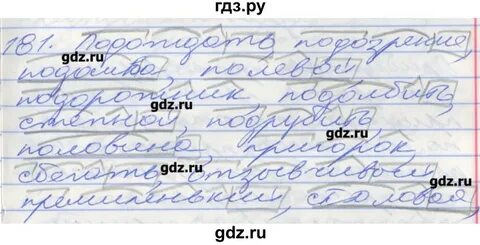 гдз.ру
181. Подождать, подозрение,
подомна, полевой,
подорожник, подолбить,
степной, подрубить,
половина, пригорок,
сбегать, отзывчивый,
премиленький, столовая,
gdz.ru
gdz.ru
gdz.ru
gdz.ru
gdz.ru
gdz.ru
gdz.ru
gdz.ru